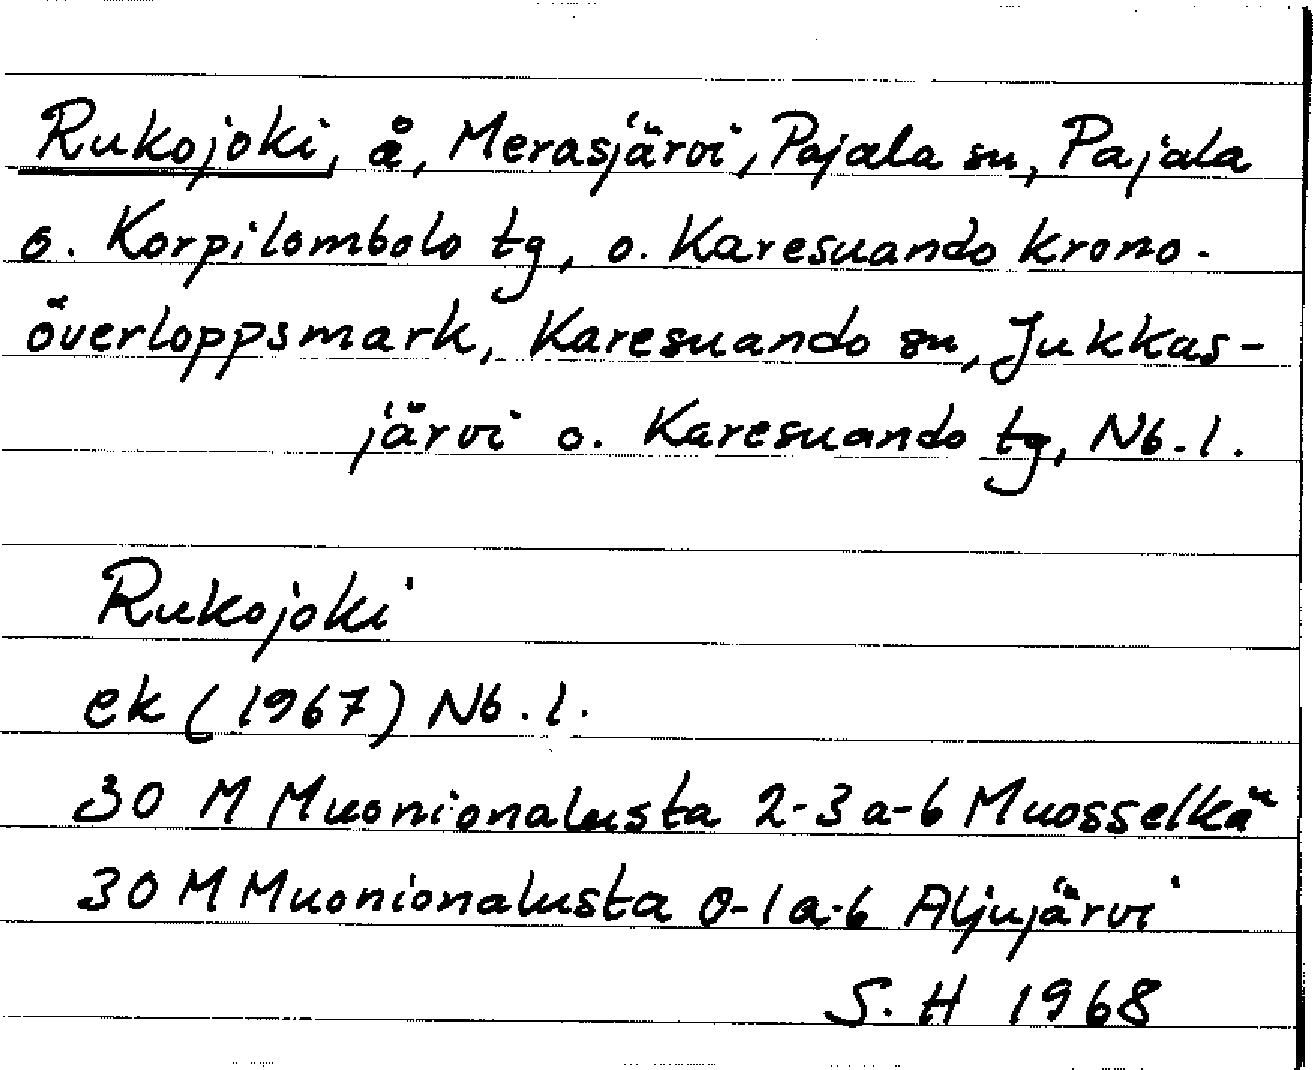 Rukojoki, å, Merasjärvi, Pajala sn, Pajala
o. Korpilombolo tg, o. Karesuando krono-
överloppsmark, Karesuando sn, Jukkas-
järvi o. Karesuando tg, Nb.l.
Rukojoki
ek (1967) Nb.l.
30 M Muonionalusta 2-3 a-b Muosselkä
30 M Muonionalusta 0-1 a-b Aljujärvi
S.H 1968